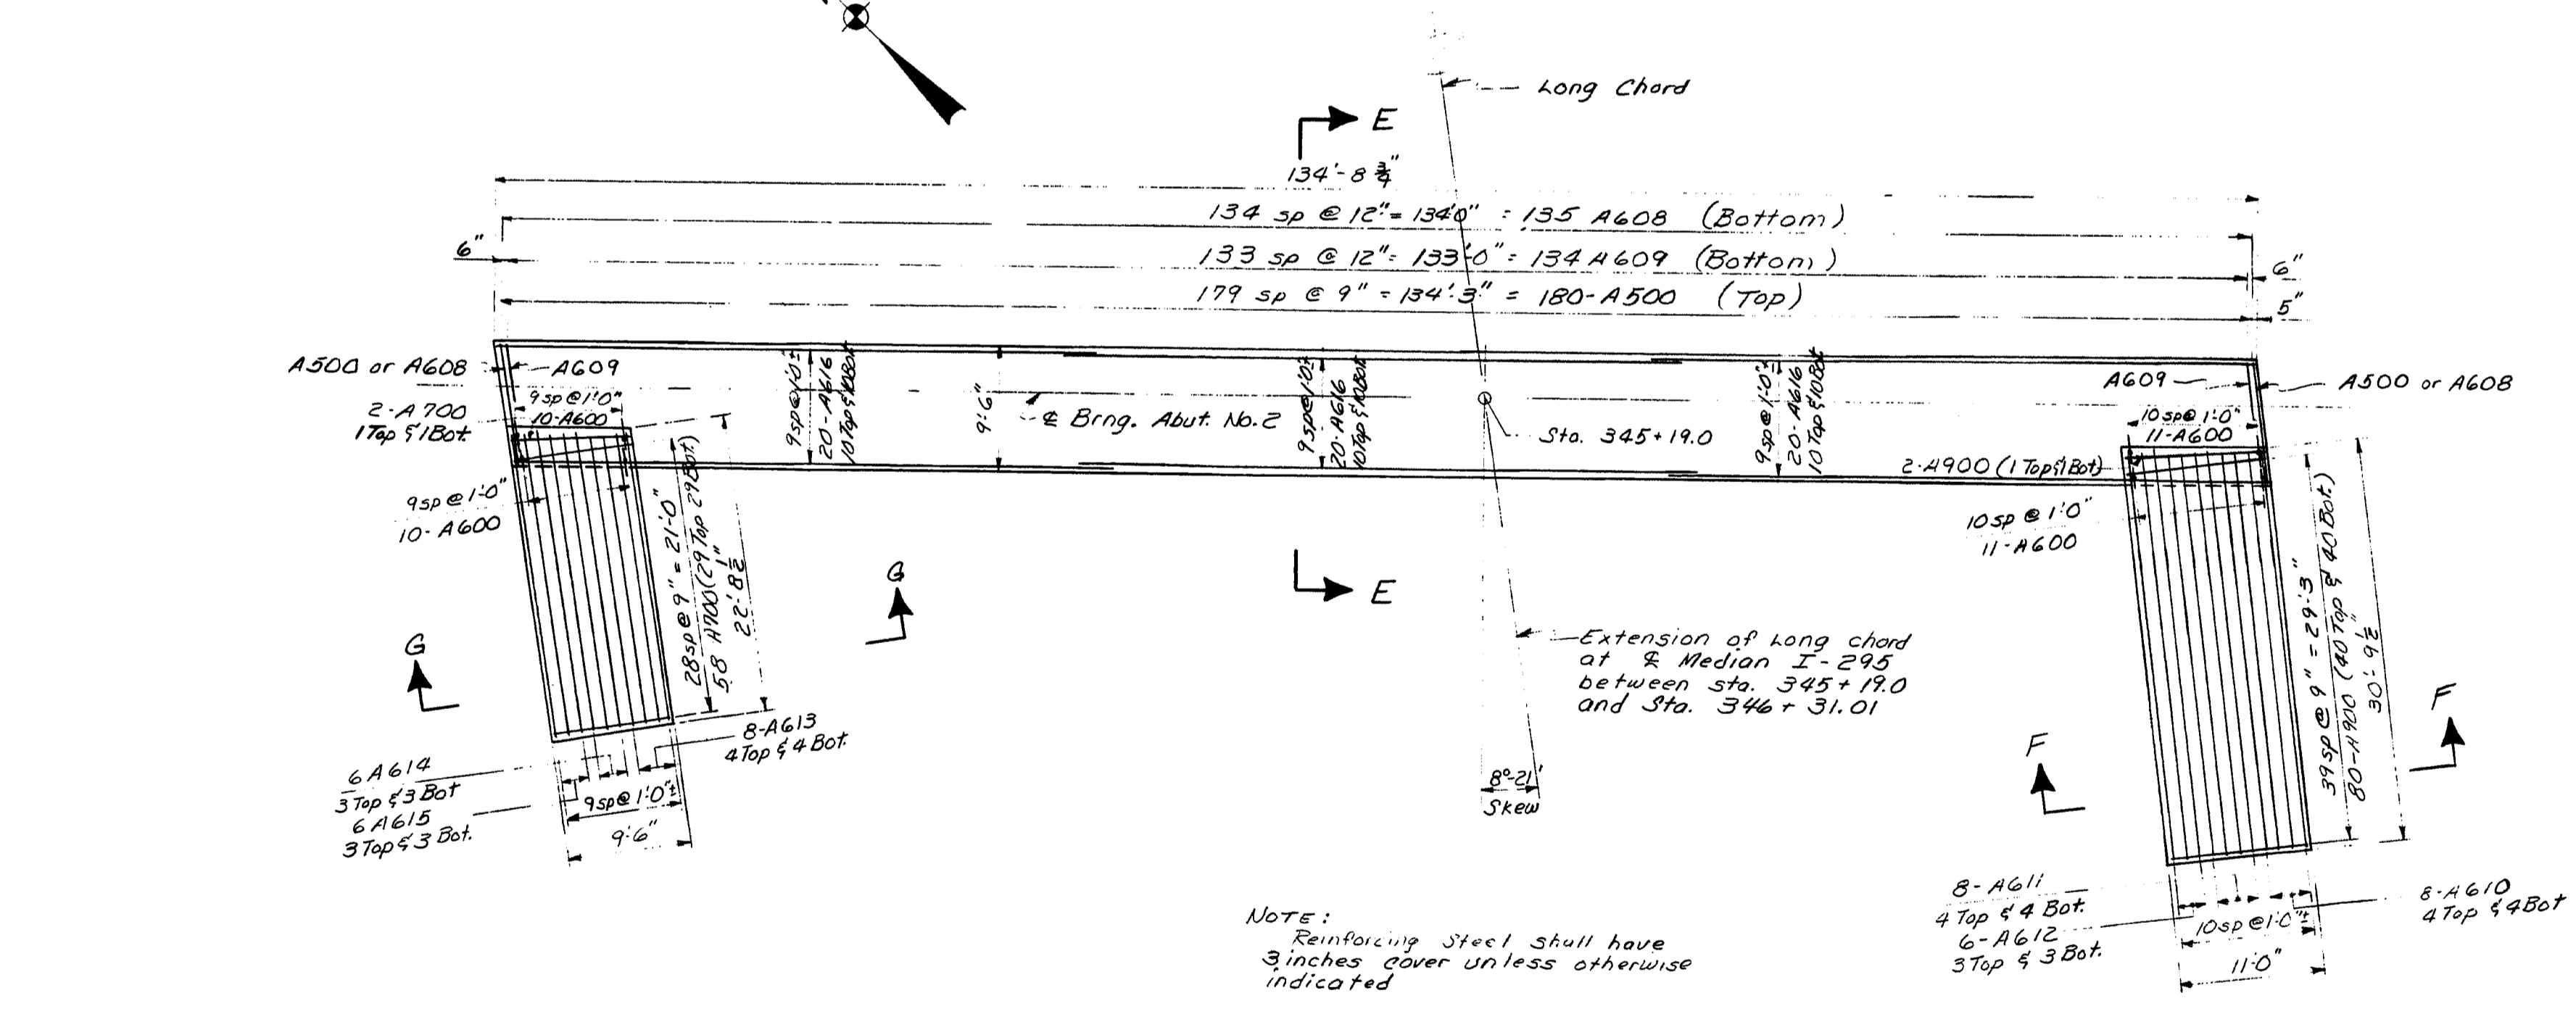 Long Chord
E
134'-8 3/4"
134 sp @ 12" = 134'0" = 135 A608 (Bottom)
6"
133 sp @ 12" = 133'-0" = 134 A609 (Bottom)
6"
179 sp @ 9" = 134'-3" = 180-A500 (Top)
5"
A500 or A608
A609
9 sp @ 1'-0"
10-A600
2-A700
1 Top & 1 Bot.
9 sp @ 1'-0"±
20-A616
10 Top & 10 Bot.
9'-6"
℄ Brng. Abut. No. 2
9 sp @ 1'-0"±
20-A616
10 Top & 10 Bot.
Sta. 345+19.0
9 sp @ 1'-0"±
20-A616
10 Top & 10 Bot
A609
A500 or A608
10 sp @ 1'-0"
11-A600
2-A900 (1 Top & 1 Bot)
9 sp @ 1'-0"
10-A600
28 sp @ 9" = 21'-0"
58 A700 (29 Top 29 Bot.)
22'-8 1/2"
10 sp @ 1'-0"
11-A600
39 sp @ 9" = 29'-3"
80-A900 (40 Top & 40 Bot.)
30'-9 1/2"
G
G
E
Extension of Long chord
at ℄ Median I-295
between sta. 345+19.0
and Sta. 346+31.01
F
F
8-A613
4 Top & 4 Bot.
6 A614
3 Top & 3 Bot
6 A615
3 Top & 3 Bot.
9 sp @ 1'-0"±
9'-6"
8°-21'
Skew
8-A611
4 Top & 4 Bot.
6-A612
3 Top & 3 Bot.
10 sp @ 1'-0"±
11'-0"
8-A610
4 Top & 4 Bot
NOTE:
Reinforcing Steel shall have
3 inches cover unless otherwise
indicated